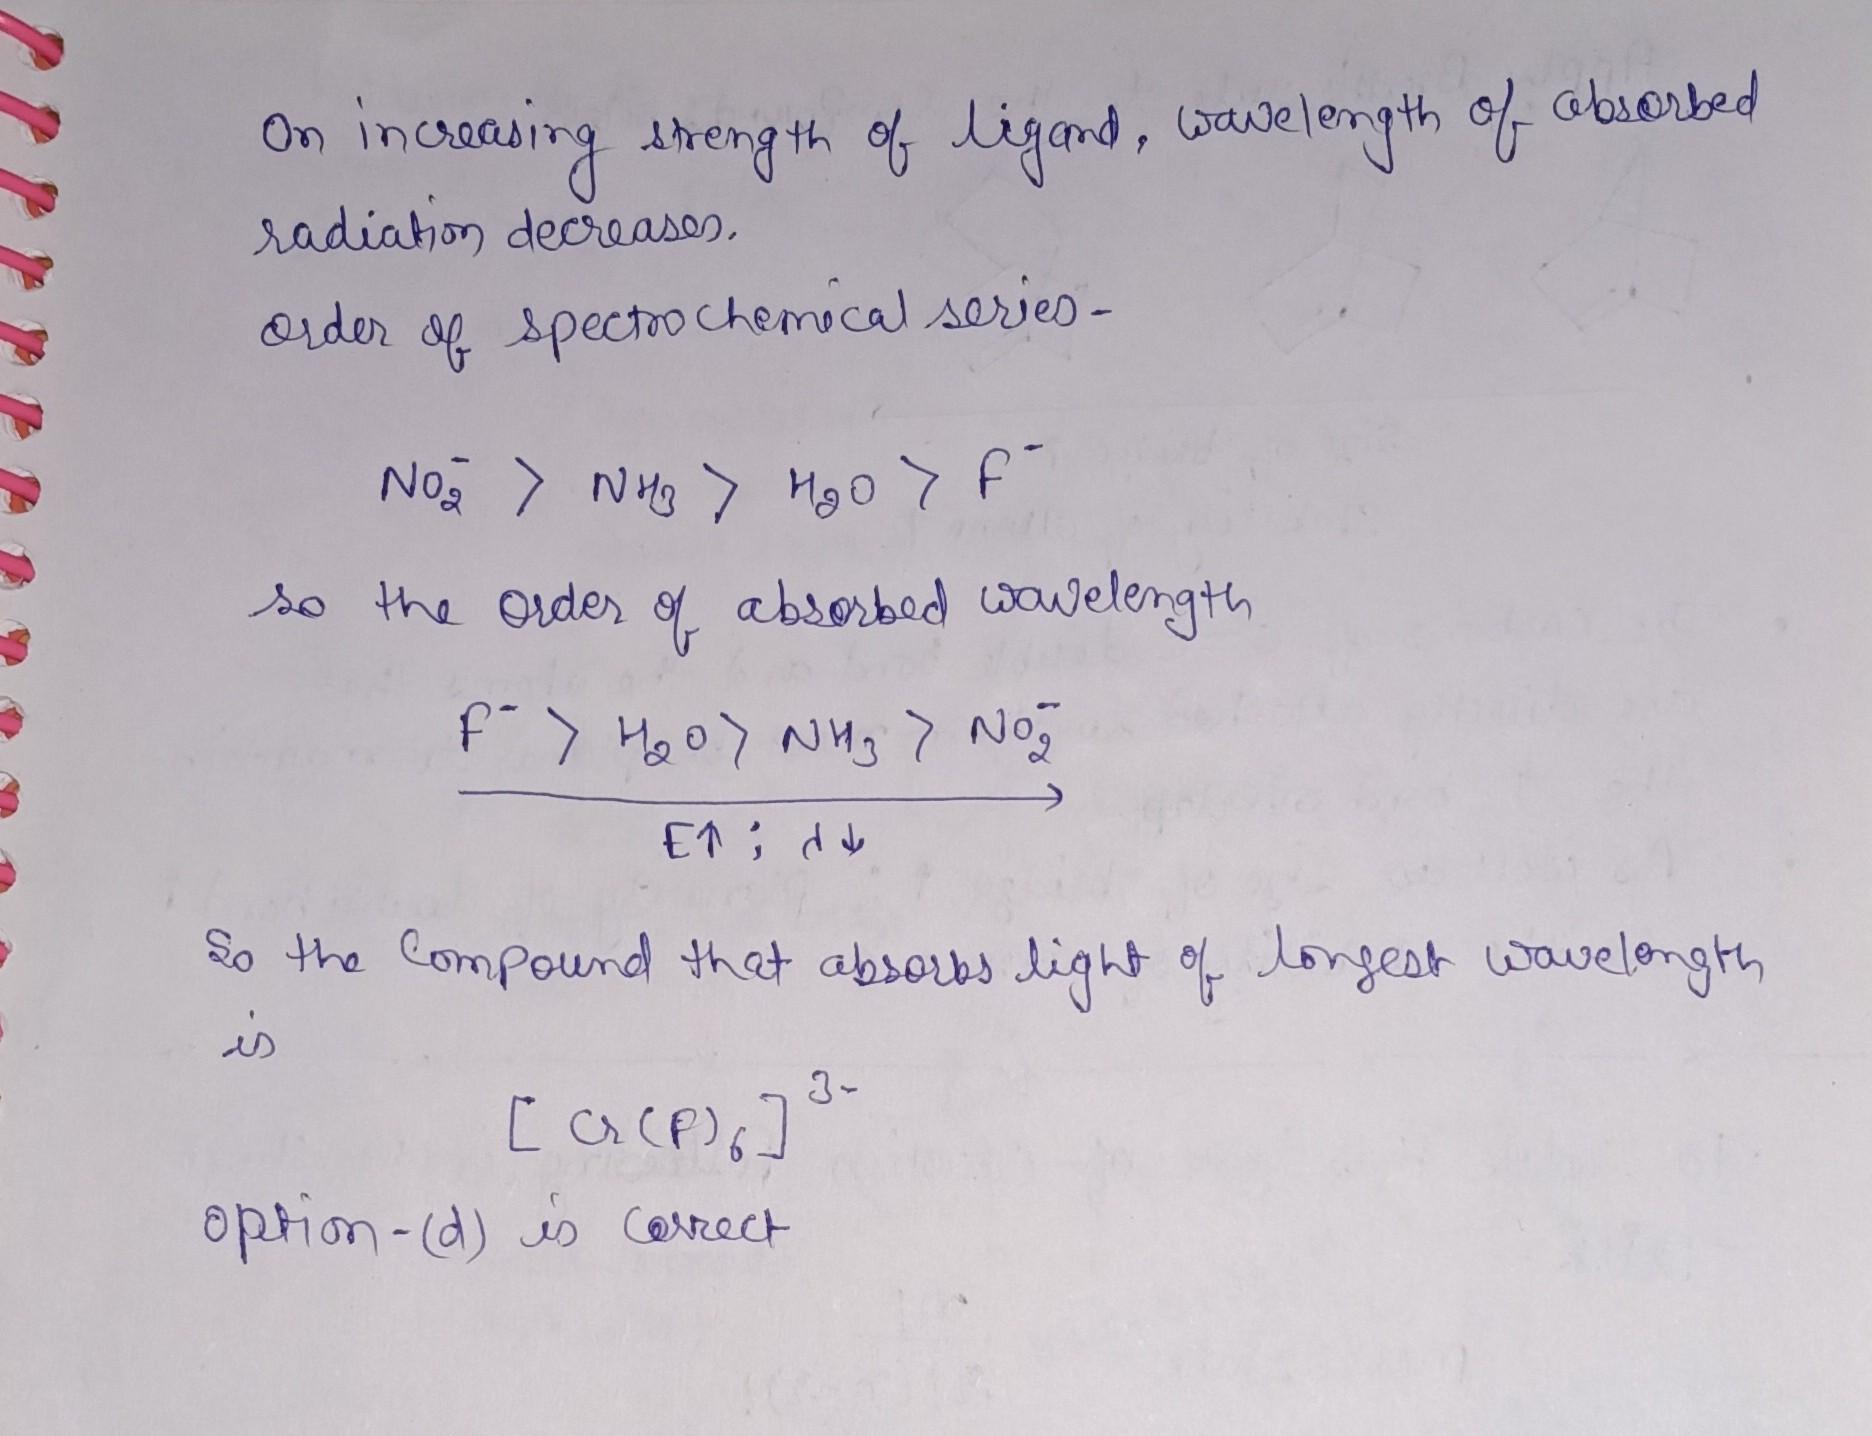 On increasing strength of ligand, wavelength of absorbed
radiation decreases.
order of spectrochemical series -
NO₂⁻ > NH₃ > H₂O > F⁻
so the order of absorbed wavelength
F⁻ > H₂O > NH₃ > NO₂⁻
E↑ ; λ↓
So the Compound that absorbs light of longest wavelength
is
[Cr(F)₆]³⁻
option-(d) is correct